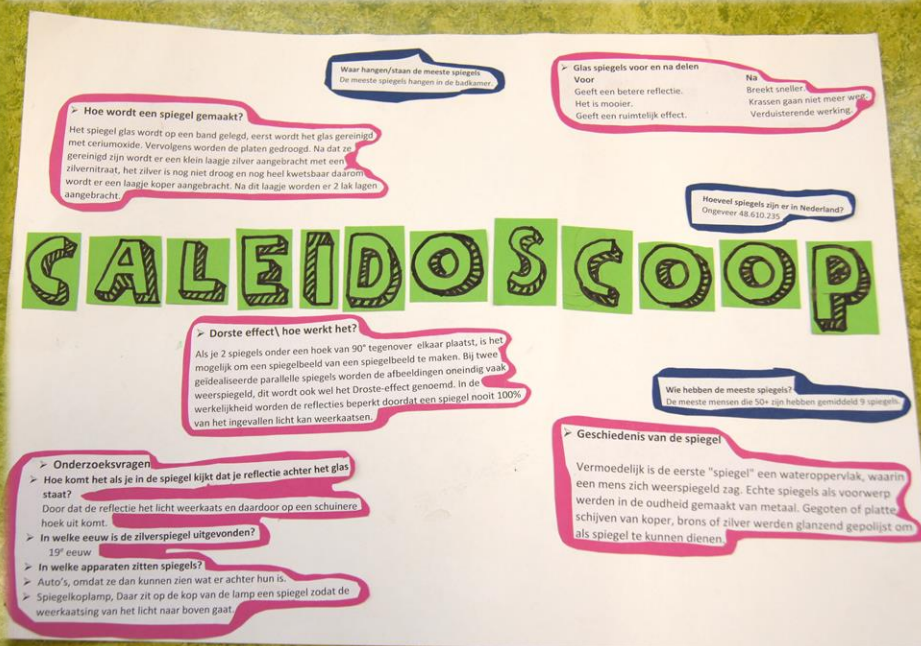 Waar hangen/staan de meeste spiegels
De meeste spiegels hangen in de badkamer.
➤ Glas spiegels voor en na delen
Voor Na
Geeft een betere reflectie. Breekt sneller.
Het is mooier. Krassen gaan niet meer weg.
Geeft een ruimtelijk effect. Verduisterende werking.
➤ Hoe wordt een spiegel gemaakt?
Het spiegel glas wordt op een band gelegd, eerst wordt het glas gereinigd
met ceriumoxide. Vervolgens worden de platen gedroogd. Na dat ze
gereinigd zijn wordt er een klein laagje zilver aangebracht met een
zilvernitraat, het zilver is nog niet droog en nog heel kwetsbaar daarom
wordt er een laagje koper aangebracht. Na dit laagje worden er 2 lak lagen
aangebracht.
Hoeveel spiegels zijn er in Nederland?
Ongeveer 48.610.235
CALEIDOSCOOP
➤ Dorste effect\ hoe werkt het?
Als je 2 spiegels onder een hoek van 90° tegenover elkaar plaatst, is het
mogelijk om een spiegelbeeld van een spiegelbeeld te maken. Bij twee
geïdealiseerde parallelle spiegels worden de afbeeldingen oneindig vaak
weerspiegeld, dit wordt ook wel het Droste-effect genoemd. In de
werkelijkheid worden de reflecties beperkt doordat een spiegel nooit 100%
van het ingevallen licht kan weerkaatsen.
Wie hebben de meeste spiegels?
De meeste mensen die 50+ zijn hebben gemiddeld 9 spiegels.
➤ Geschiedenis van de spiegel
Vermoedelijk is de eerste "spiegel" een wateroppervlak, waarin
een mens zich weerspiegeld zag. Echte spiegels als voorwerp
werden in de oudheid gemaakt van metaal. Gegoten of platte
schijven van koper, brons of zilver werden glanzend gepolijst om
als spiegel te kunnen dienen.
➤ Onderzoeksvragen
➤ Hoe komt het als je in de spiegel kijkt dat je reflectie achter het glas
staat?
Door dat de reflectie het licht weerkaats en daardoor op een schuinere
hoek uit komt.
➤ In welke eeuw is de zilverspiegel uitgevonden?
19e eeuw
➤ In welke apparaten zitten spiegels?
➤ Auto's, omdat ze dan kunnen zien wat er achter hun is.
➤ Spiegelkoplamp, Daar zit op de kop van de lamp een spiegel zodat de
weerkaatsing van het licht naar boven gaat.